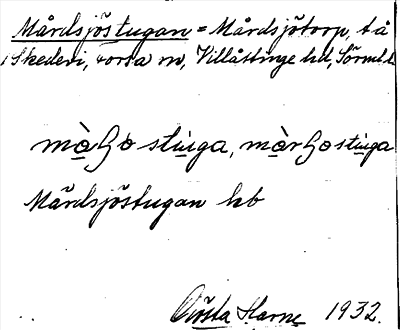 Mårdsjöstugan = Mårdsjötorp, t å
Skedevi, orra m, Villåttinge hd, Sörml.
màɧo stuga, màrɧo stuga
Mårdsjöstugan hb
Gösta Harne 1932.